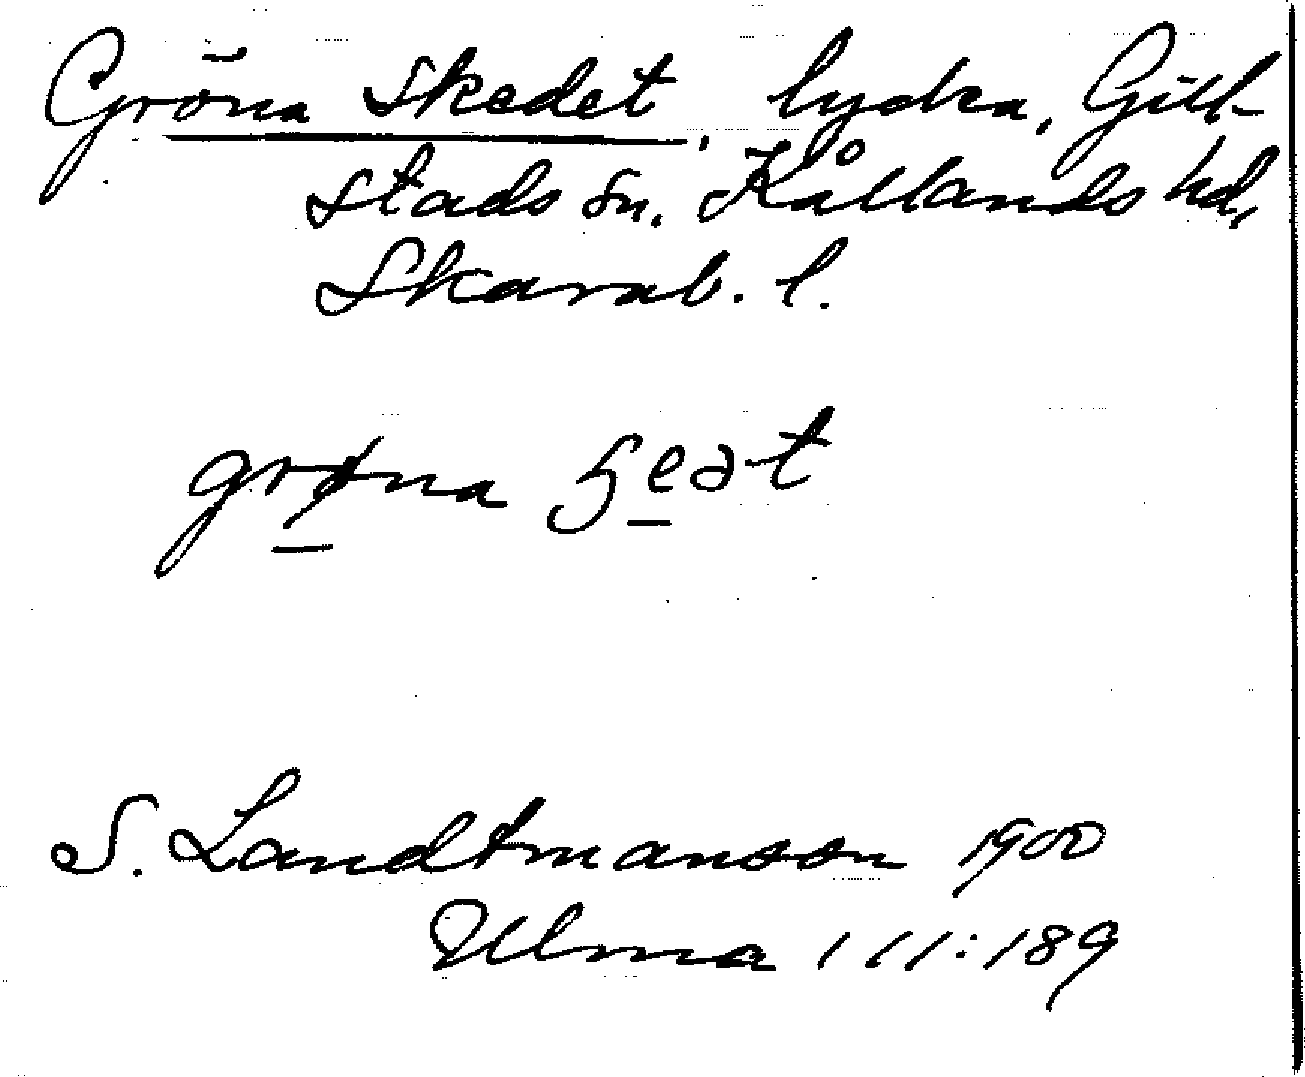 Gröna Skedet, lydra, Gill-
stads sn. Kållands hd,
Skarab. l.
grøna ʃeət
S. Landtmanson 1900
Ulma 111:189